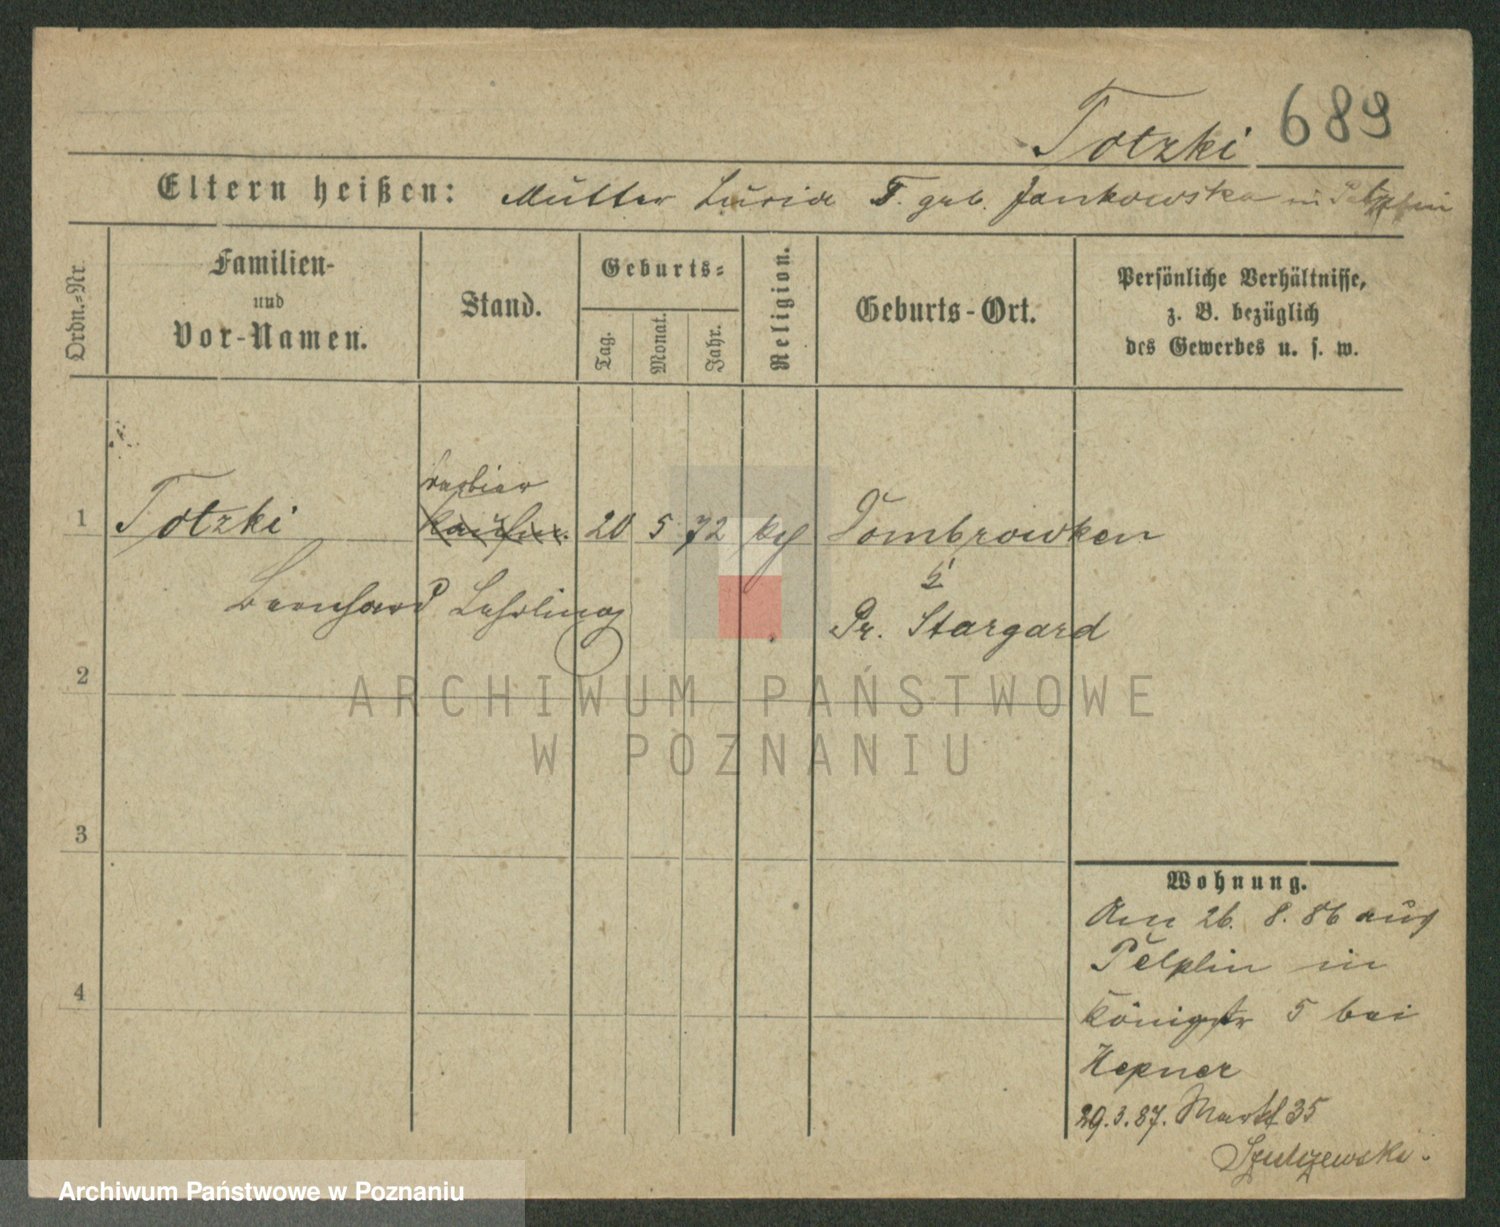 Totzki 689
Eltern heißen: Mutter Luria T. geb. Jankowska in Pelplin
Ordn.=Nr.
Familien-
und
Vor-Namen.
Stand.
Geburts=
Tag.
Monat.
Jahr.
Religion.
Geburts-Ort.
Persönliche Verhältnisse,
z. B. bezüglich
des Gewerbes u. s. w.
Barbier
1 Totzki Kaufm. 20 5 72 Dombrowken
Bernhard Lehrling
Pr. Stargard
2
3
4
ARCHIWUM PAŃSTWOWE
W POZNANIU
Wohnung.
Am 26. 8. 86 aus
Pelplin in
Königstr 5 bei
Hepner
29.3.87. Markt 35
Archiwum Państwowe w Poznaniu